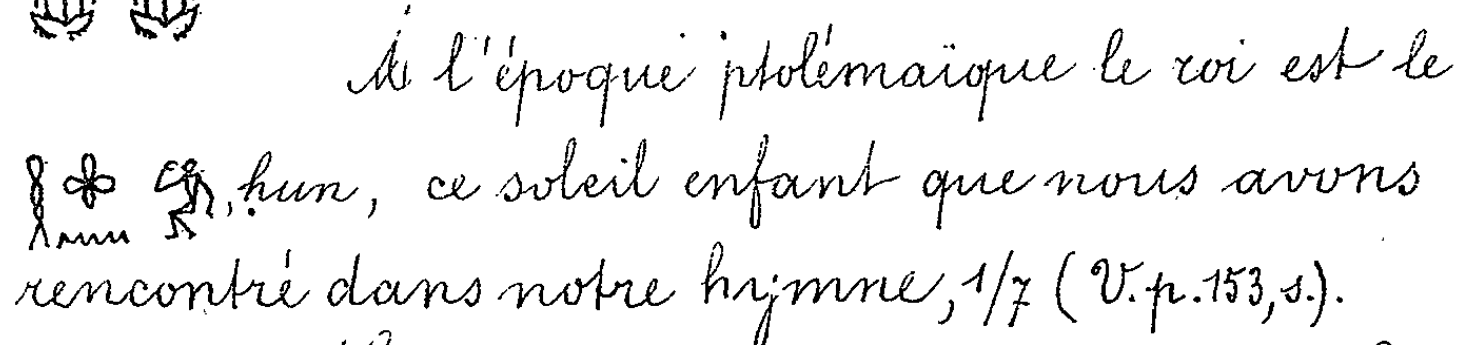 À l'époque ptolémaïque le roi est le
, ḥun, ce soleil enfant que nous avons
rencontré dans notre hymne, 1/7 (V. p. 153, s.).